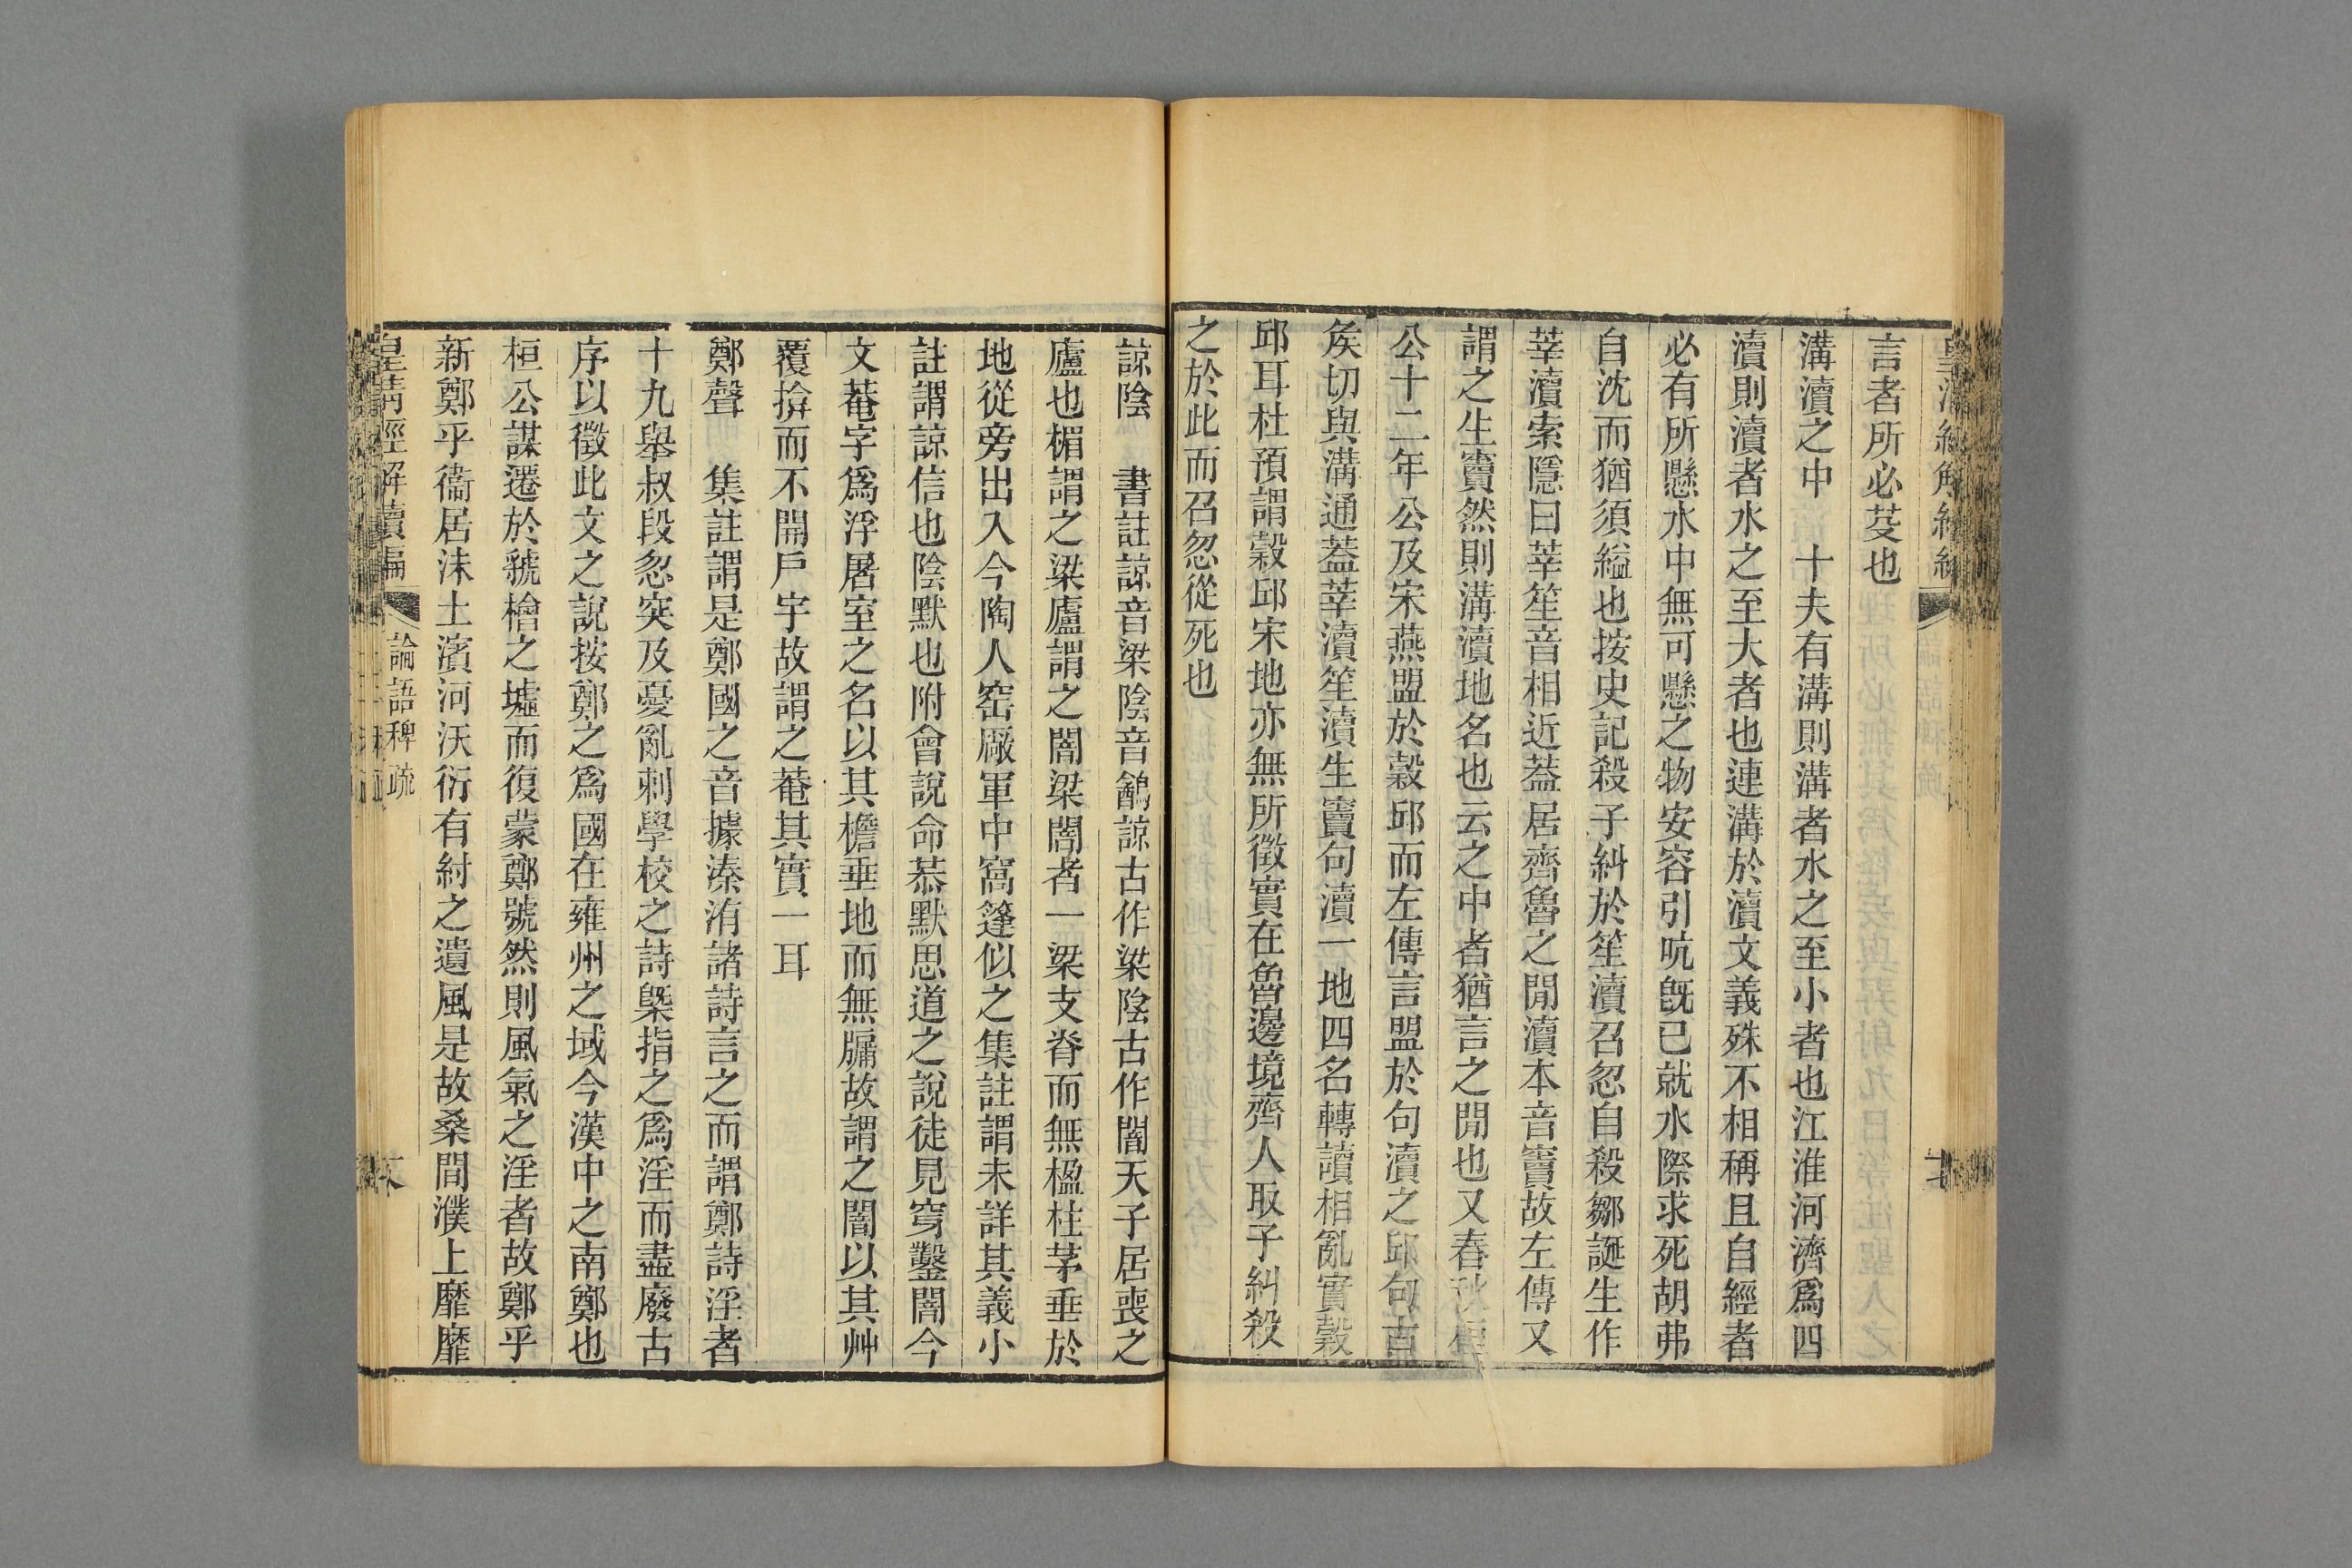 言者所必芟也
溝瀆之中　十夫有溝則溝者水之至小者也江淮河濟爲四
瀆則瀆者水之至大者也連溝於瀆文義殊不相稱且自經者
必有所懸水中無可懸之物安容引吭旣已就水際求死胡弗
自沈而猶須縊也按史記殺子糾於笙瀆召忽自殺鄒誕生作
莘瀆索隱曰莘笙音相近葢居齊魯之閒瀆本音竇故左傳又
謂之生竇然則溝瀆地名也云之中者猶言之閒也又春秋桓
公十二年公及宋燕盟於穀邱而左傳言盟於句瀆之邱句古
矦切與溝通葢莘瀆笙瀆生竇句瀆一地四名轉讀相亂實穀
邱耳杜預謂穀邱宋地亦無所徵實在魯邊境齊人取子糾殺
之於此而召忽從死也
諒陰　書註諒音梁陰音鵮諒古作梁陰古作闇天子居喪之
廬也楣謂之梁廬謂之闇梁闇者一梁支脊而無楹柱茅垂於
地從旁出入今陶人窑厰軍中窩篷似之集註謂未詳其義小
註謂諒信也陰默也附會說命恭默思道之說徒見穿鑿闇今
文菴字爲浮屠室之名以其檐垂地而無牖故謂之闇以其艸
覆揜而不開戶宇故謂之菴其實一耳
鄭聲　集註謂是鄭國之音據溱洧諸詩言之而謂鄭詩淫者
十九舉叔段忽突及憂亂刺學校之詩槩指之爲淫而盡廢古
序以徵此文之說按鄭之爲國在雍州之域今漢中之南鄭也
桓公謀遷於虢檜之墟而復蒙鄭號然則風氣之淫者故鄭乎
新鄭乎衞居沬土濱河沃衍有紂之遺風是故桑間濮上靡靡
皇淸經解續編　論語稗疏